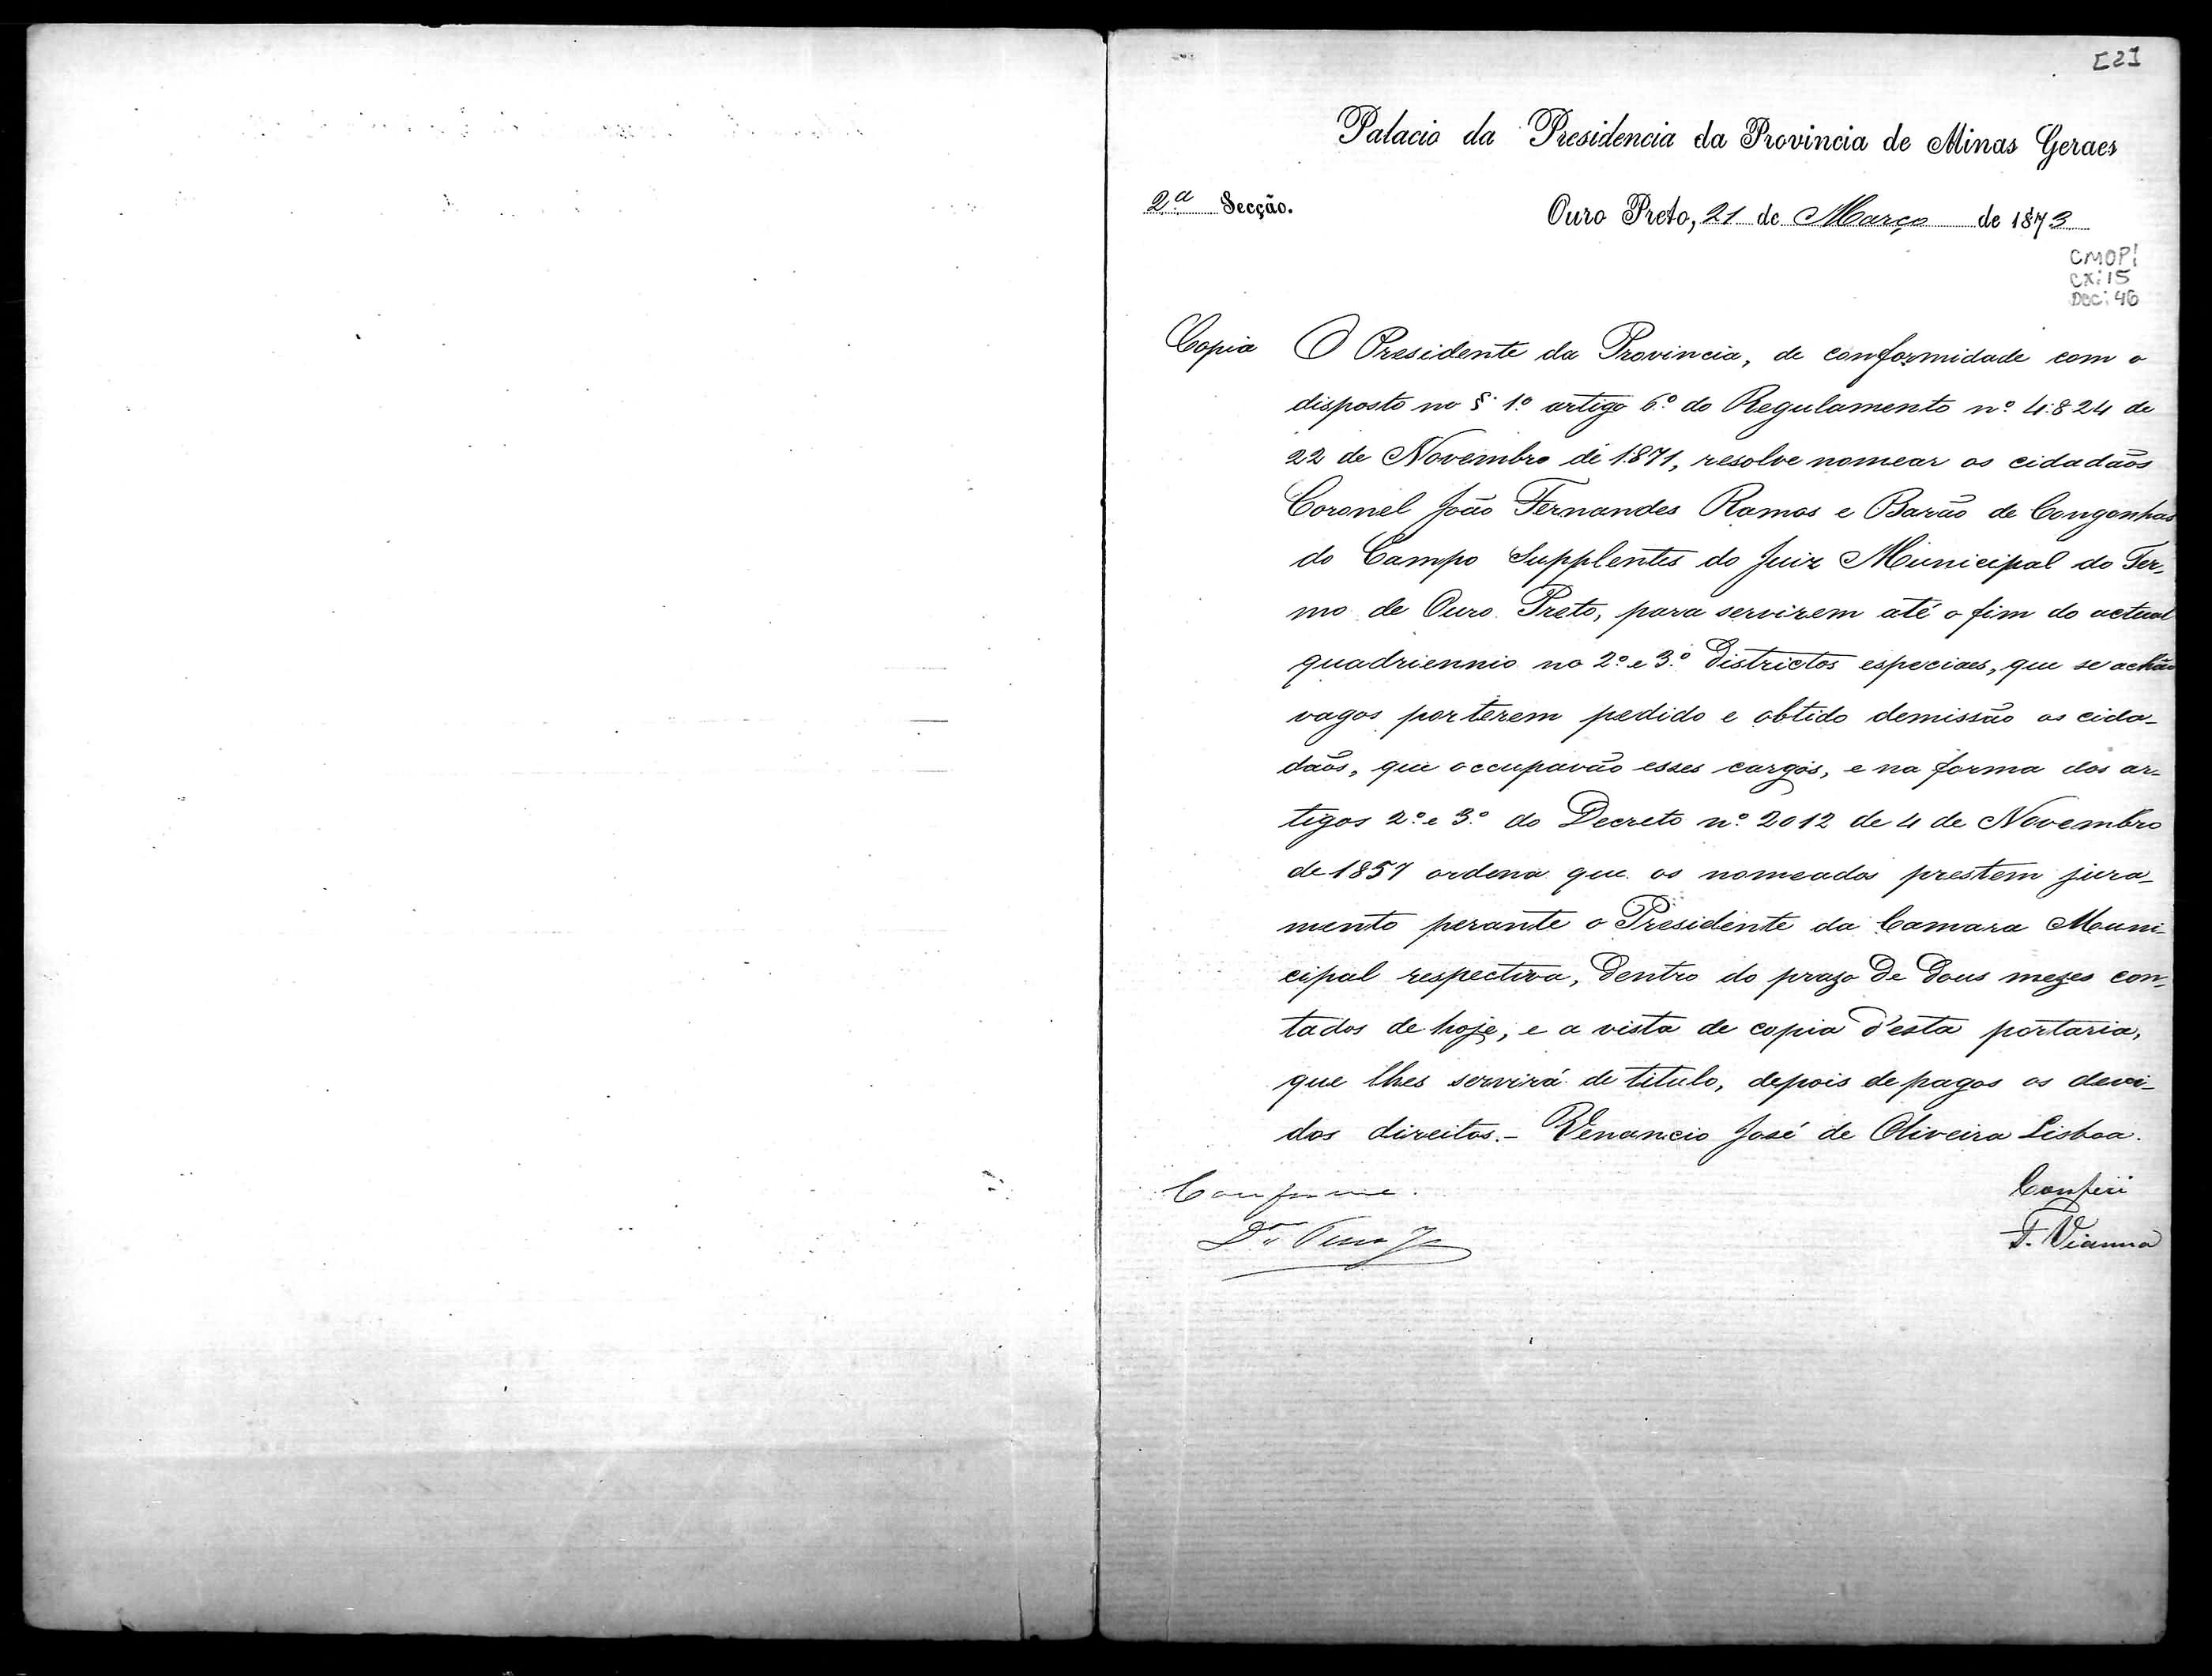 [2]
Palacio da Presidencia da Provincia de Minas Geraes
2ª Secção.
Ouro Preto, 21 de Março de 1873
CMOP!
CX: 15
DOC: 46
Copia O Presidente da Provincia, de conformidade com o
disposto no § 1º artigo 6º do Regulamento nº 4.824 de
22 de Novembro de 1871, resolve nomear os cidadãos
Coronel João Fernandes Ramos e Barão de Congonhas
do Campo Supplentes do Juiz Municipal do Ter-
mo de Ouro Preto, para servirem até o fim do actual
quadriennio no 2º e 3º Districtos especiaes, que se achão
vagos por terem pedido e obtido demissão os cida-
dãos, que occupavão esses cargos, e na forma dos ar-
tigos 2º e 3º do Decreto nº 2012 de 4 de Novembro
de 1857 ordena que os nomeados prestem jura-
mento perante o Presidente da Camara Muni-
cipal respectiva, dentro do prazo de dous mezes con-
tados de hoje, e a vista de copia d'esta portaria,
que lhes servirá de titulo, depois de pagos os devi-
dos direitos.- Venancio José de Oliveira Lisboa.
Conforme. Conferi
F. Vianna